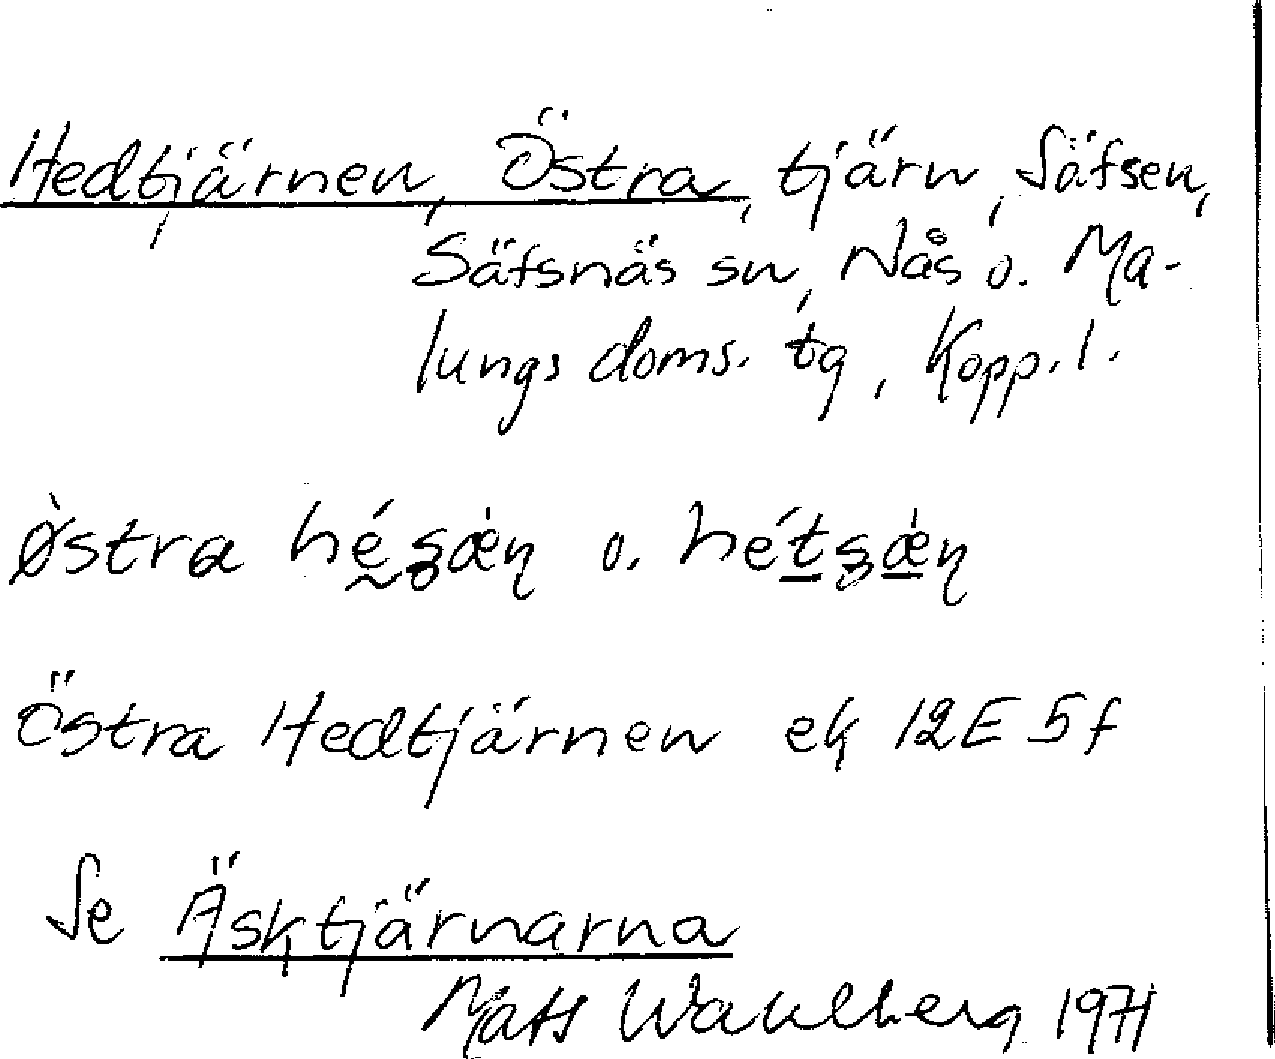 Hedtjärnen, Östra, tjärn, Säfsen,
Säfsnäs sn, Nås o. Ma-
lungs doms. tg, Kopp. l.
östra o.
Östra Hedtjärnen ek 12E 5f
Se Äsktjärnarna
Mats Wahlberg 1971